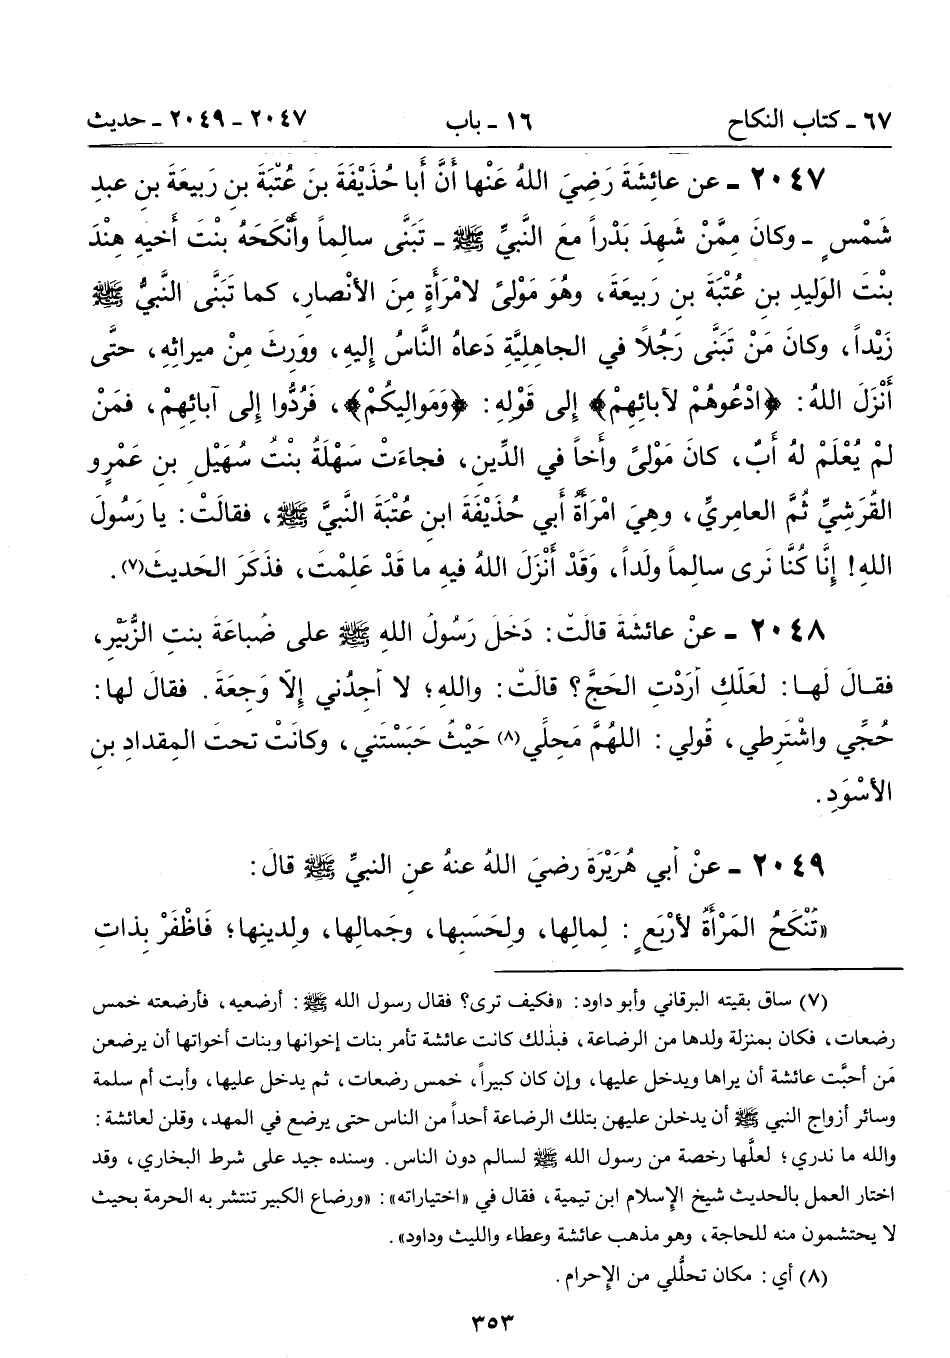 ٦٧ ـ كتاب النكاح ١٦ ـ باب ٢٠٤٧ ـ ٢٠٤٩ ـ حديث
٢٠٤٧ ـ عن عائشةَ رَضِيَ اللهُ عَنْها أَنَّ أَبا حُذَيْفَةَ بنَ عُتْبَةَ بنِ رَبيعَةَ بنِ عبدِ
شَمْسٍ ـ وكانَ مِمَّنْ شَهِدَ بَدْراً معَ النَّبيِّ ﷺ ـ تَبَنَّى سالِماً وأَنْكَحَهُ بنْتَ أَخيهِ هِنْدَ
بنْتَ الوَليدِ بنِ عُتْبَةَ بنِ رَبيعَةَ، وهُوَ مَوْلىً لامْرَأَةٍ مِنَ الأنْصارِ، كما تَبَنَّى النَّبيُّ ﷺ
زَيْداً، وكانَ مَنْ تَبَنَّى رَجُلاً في الجاهِليَّةِ دَعاهُ النَّاسُ إليهِ، ووَرِثَ مِنْ ميراثِهِ، حتَّى
أَنْزَلَ اللهُ: ﴿ادْعُوهُمْ لآبائِهِمْ﴾ إلى قَوْلِهِ: ﴿وَمَواليكُمْ﴾، فَرُدُّوا إلى آبائِهِمْ، فمَنْ
لمْ يُعْلَمْ لهُ أَبٌ، كانَ مَوْلىً وأَخاً في الدِّينِ، فجاءَتْ سَهْلَةُ بنْتُ سُهَيْلِ بنِ عَمْرٍو
القُرَشِيِّ ثُمَّ العامِريِّ، وهِيَ امْرَأَةُ أَبي حُذَيْفَةَ ابنِ عُتْبَةَ النَّبيَّ ﷺ، فقالَتْ: يا رَسُولَ
اللهِ! إنَّا كُنَّا نَرى سالِماً ولَداً، وَقَدْ أَنْزَلَ اللهُ فيهِ ما قَدْ عَلِمْتَ، فذَكَرَ الحَديثَ(٧).
٢٠٤٨ ـ عنْ عائشةَ قالَتْ: دَخلَ رَسُولُ اللهِ ﷺ على ضُباعَةَ بنتِ الزُّبَيْرِ،
فقـالَ لَهـا: لعَلَّكِ أَرَدْتِ الحَجَّ؟ قالَتْ: واللهِ؛ لا أَجِدُني إلاّ وَجِعَةً. فقالَ لها:
حُجِّي واشْتَرِطي، قُولي: اللهُمَّ مَحِلِّي(٨) حَيْثُ حَبَسْتَني، وكانَتْ تحتَ المِقدادِ بنِ
الأسْوَدِ.
٢٠٤٩ ـ عنْ أَبي هُرَيْرَةَ رضِيَ اللهُ عنهُ عنِ النبيِّ ﷺ قالَ:
«تُنْكَحُ المَرْأَةُ لأرْبَعٍ: لِمالِها، ولِحَسَبِها، وجَمالِها، ولِدينِها؛ فَاظْفَرْ بذاتِ
(٧) ساق بقيته البرقاني وأبو داود: «فكيف ترى؟ فقال رسول الله ﷺ: أرضعيه، فأرضعته خمس
رضعات، فكان بمنزلة ولدها من الرضاعة، فبذلك كانت عائشة تأمر بنات إخوانها وبنات أخواتها أن يرضعن
مَن أحبَّت عائشة أن يراها ويدخل عليها، وإن كان كبيراً، خمس رضعات، ثم يدخل عليها، وأبت أم سلمة
وسائر أزواج النبي ﷺ أن يدخلن عليهن بتلك الرضاعة أحداً من الناس حتى يرضع في المهد، وقلن لعائشة:
والله ما ندري؛ لعلَّها رخصة من رسول الله ﷺ لسالم دون الناس. وسنده جيد على شرط البخاري، وقد
اختار العمل بالحديث شيخ الإسلام ابن تيمية، فقال في «اختياراته»: «ورضاع الكبير تنتشر به الحرمة بحيث
لا يحتشمون منه للحاجة، وهو مذهب عائشة وعطاء والليث وداود».
(٨) أي: مكان تحلُّلي من الإحرام.
٣٥٣